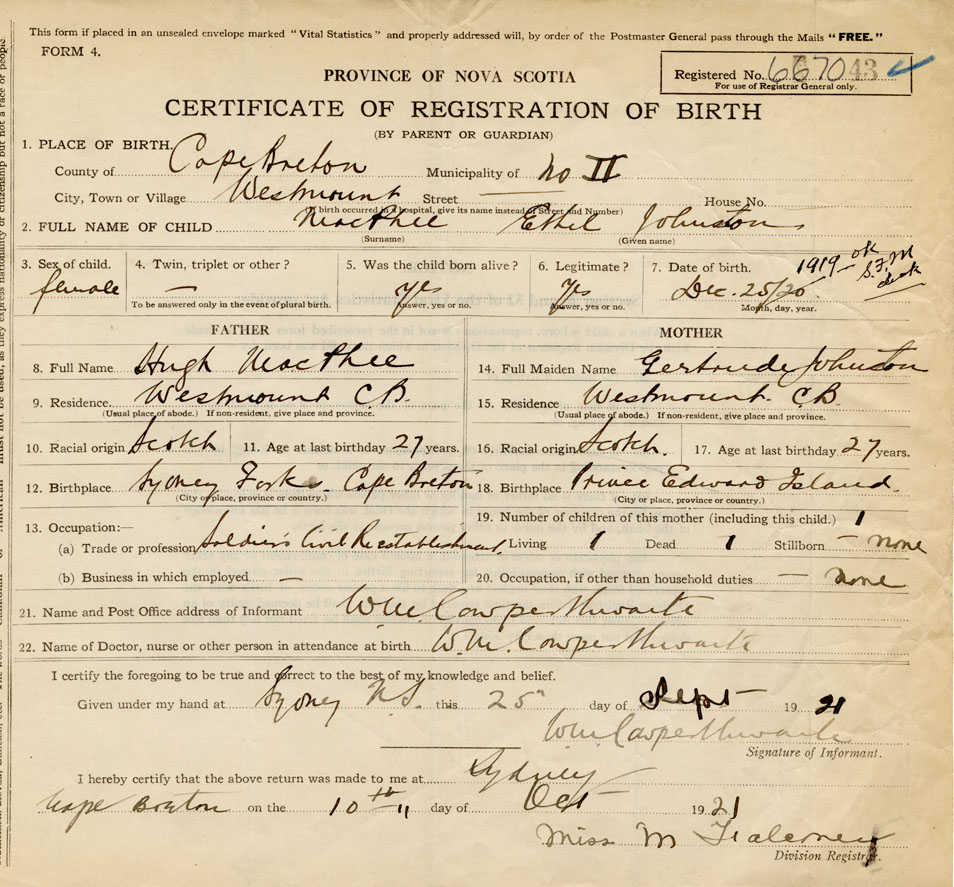 This form if placed in an unsealed envelope marked "Vital Statistics" and properly addressed will, by order of the Postmaster General pass through the Mails "FREE."
FORM 4.
PROVINCE OF NOVA SCOTIA
Registered No. 667043
For use of Registrar General only.
CERTIFICATE OF REGISTRATION OF BIRTH
(BY PARENT OR GUARDIAN)
1. PLACE OF BIRTH,
County of Cape Breton Municipality of No II
City, Town or Village Westmount Street House No.
(If birth occurred in a hospital, give its name instead of Street and Number)
2. FULL NAME OF CHILD MacPhee Ethel Johnston
(Surname) (Given name)
3. Sex of child. female
4. Twin, triplet or other? —
To be answered only in the event of plural birth.
5. Was the child born alive? yes
Answer, yes or no.
6. Legitimate? yes
Answer, yes or no.
7. Date of birth. 1919 ok
Dec. 25/20
Month, day, year.
FATHER
8. Full Name Hugh MacPhee
9. Residence. Westmount C.B.
(Usual place of abode.) If non-resident, give place and province.
10. Racial origin Scotch 11. Age at last birthday 27 years.
12. Birthplace Sydney Forks Cape Breton
(City or place, province or country.)
13. Occupation:—
(a) Trade or profession Soldier's Civil Reestablishment
(b) Business in which employed —
MOTHER
14. Full Maiden Name Gertrude Johnston
15. Residence Westmount. C.B.
(Usual place of abode.) If non-resident, give place and province.
16. Racial origin Scotch. 17. Age at last birthday 27 years.
18. Birthplace Prince Edward Island.
(City or place, province or country.)
19. Number of children of this mother (including this child.) 1
Living 1 Dead 1 Stillborn — none
20. Occupation, if other than household duties — none
21. Name and Post Office address of Informant Wm. Cowperthwaite
22. Name of Doctor, nurse or other person in attendance at birth W.M. Cowperthwaite
I certify the foregoing to be true and correct to the best of my knowledge and belief.
Given under my hand at Sydney N.S. this 25" day of Sept 19 21
Wm Cowperthwaite
Signature of Informant.
I hereby certify that the above return was made to me at Sydney
Cape Breton on the 10th day of Oct 1921
Miss M
Division Registrar.